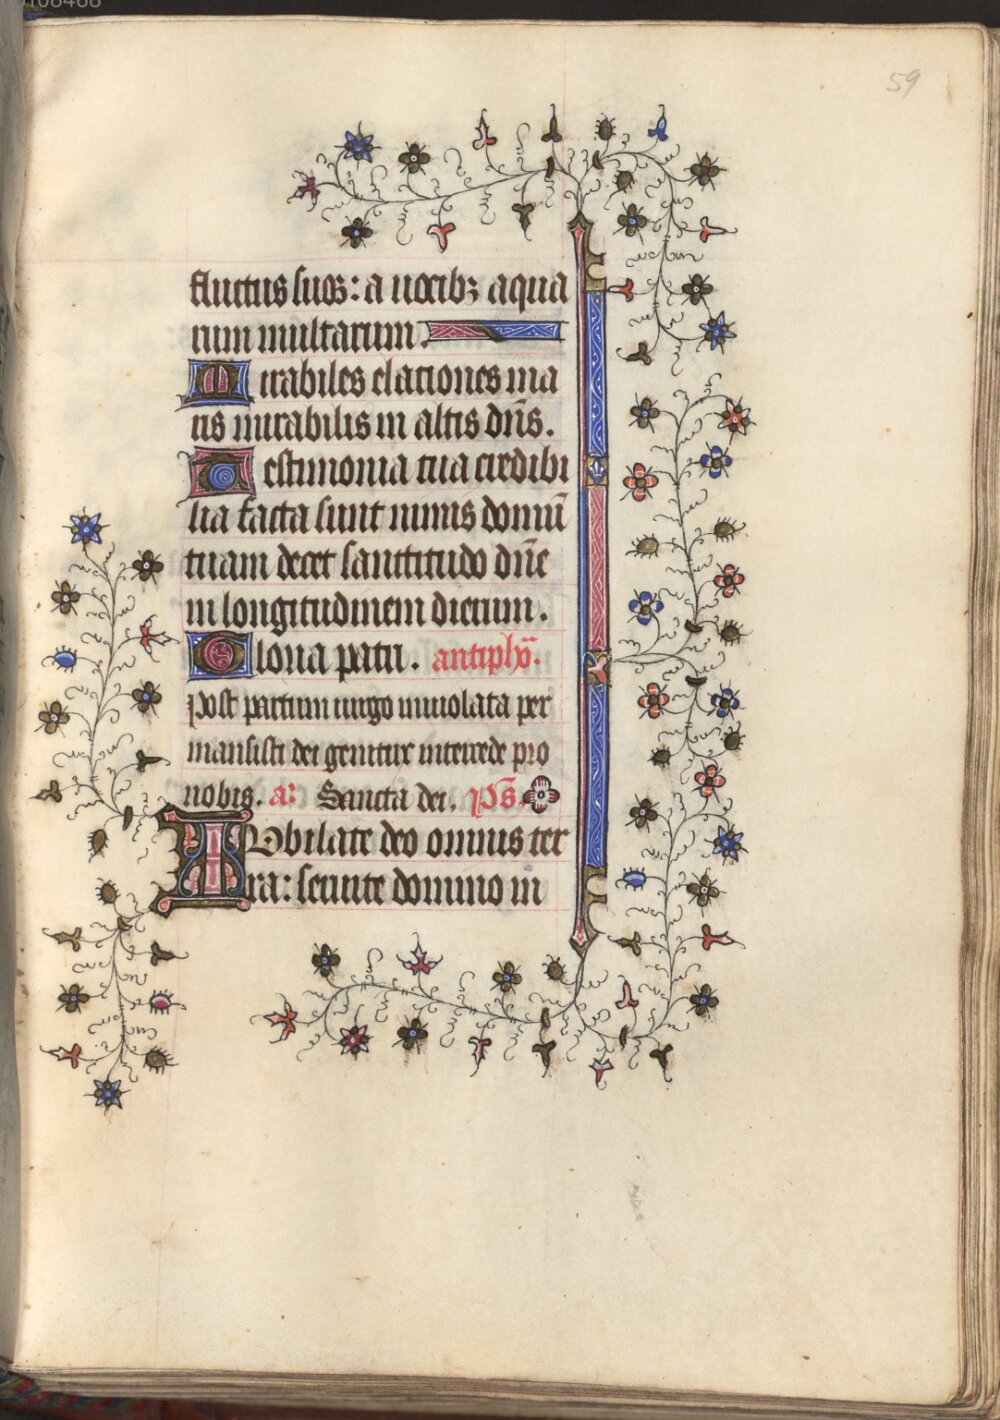 59
fluctus suos: a vocibꝫ aqua
rum multarum.
Mirabiles elationes ma
ris mirabilis in altis dn̄s.
Testimonia tua credibi
lia facta sunt nimis domū
tuam decet sanctitudo dn̄e
in longitudinem dierum.
Gloria patri. antiphō.
Post partum virgo inviolata per
mansisti dei genitrix intercede pro
nobis. a: Sancta dei. ps̄.
Jubilate deo omnis ter
ra: servite domino in